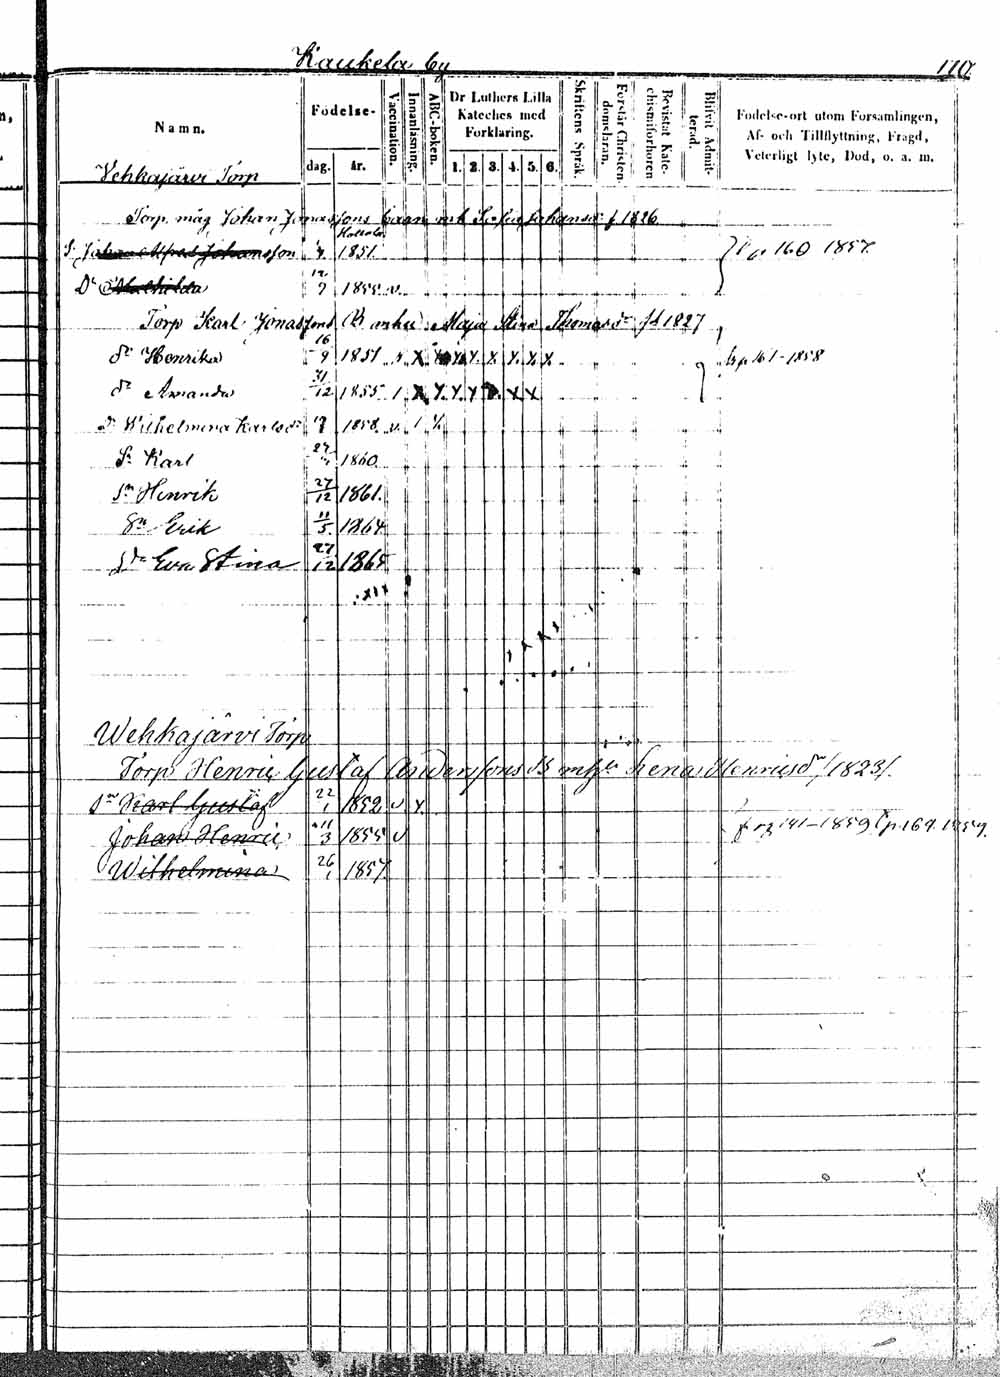 Kaukela by
110.
Namn.
Födelse-
dag.
år.
Vaccination.
Innanläsning.
ABC-boken.
Dr Luthers Lilla
Kateches med
Förklaring.
1. 2. 3. 4. 5. 6.
Skriftens Språk.
Förstår Christen-
domsläran.
Bevistat Kate-
chismiförhören
Blifvit Admit-
terad.
Födelse-ort utom Församlingen,
Af- och Tillflyttning, Frägd,
Veterligt lyte, Död, o. a. m.
Vehkajärvi Torp
Torp. måg Johan Jonassons barn Johansdr f 1826
Hollola
S. Johan Alfred Johansson 4 1851. p 160 1857.
Dr Mathilda 12/7 1855 v.
Torp Karl Jonassons Maja Stina Thomasdr fd 1827
dr Henrika 16/9 1851 x x x x x x x p 161-1858
dr Amanda 31/12 1855 1 x x x x x x
dr Wilhelmina Karlsdr 1858 v 1
Sn Karl 1860
Sn Henrik 27/12 1861.
Sn Erik 11/5. 1864
dr Eva Stina 27/12 1865
xxx
x x x x
Wehkajärvi Torp
Torp Henric Gustaf Anderssons B Lena Henricsdr f 1823.
Sn Karl Gustaf 22/1 1852 v x.
Johan Henric 11/3 1855 v 141-1859 p. 164. 1859.
Wilhelmina 26/1 1857